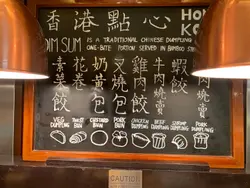 香港點心
HON
KO
DIM SUM IS A TRADITIONAL CHINESE DUMPLING
ONE-BITE PORTION SERVED IN BAMBOO STE
素菜餃
花卷
奶黃包
叉燒包
雞肉餃
牛肉燒賣
蝦餃
肉燒賣
VEG DUMPLING
TWIST BUN
CUSTARD BUN
PORK BUN
CHICKEN DUMPLING
BEEF DUMPLING
SHRIMP DUMPLING
PORK DUMPLING
CAUTION